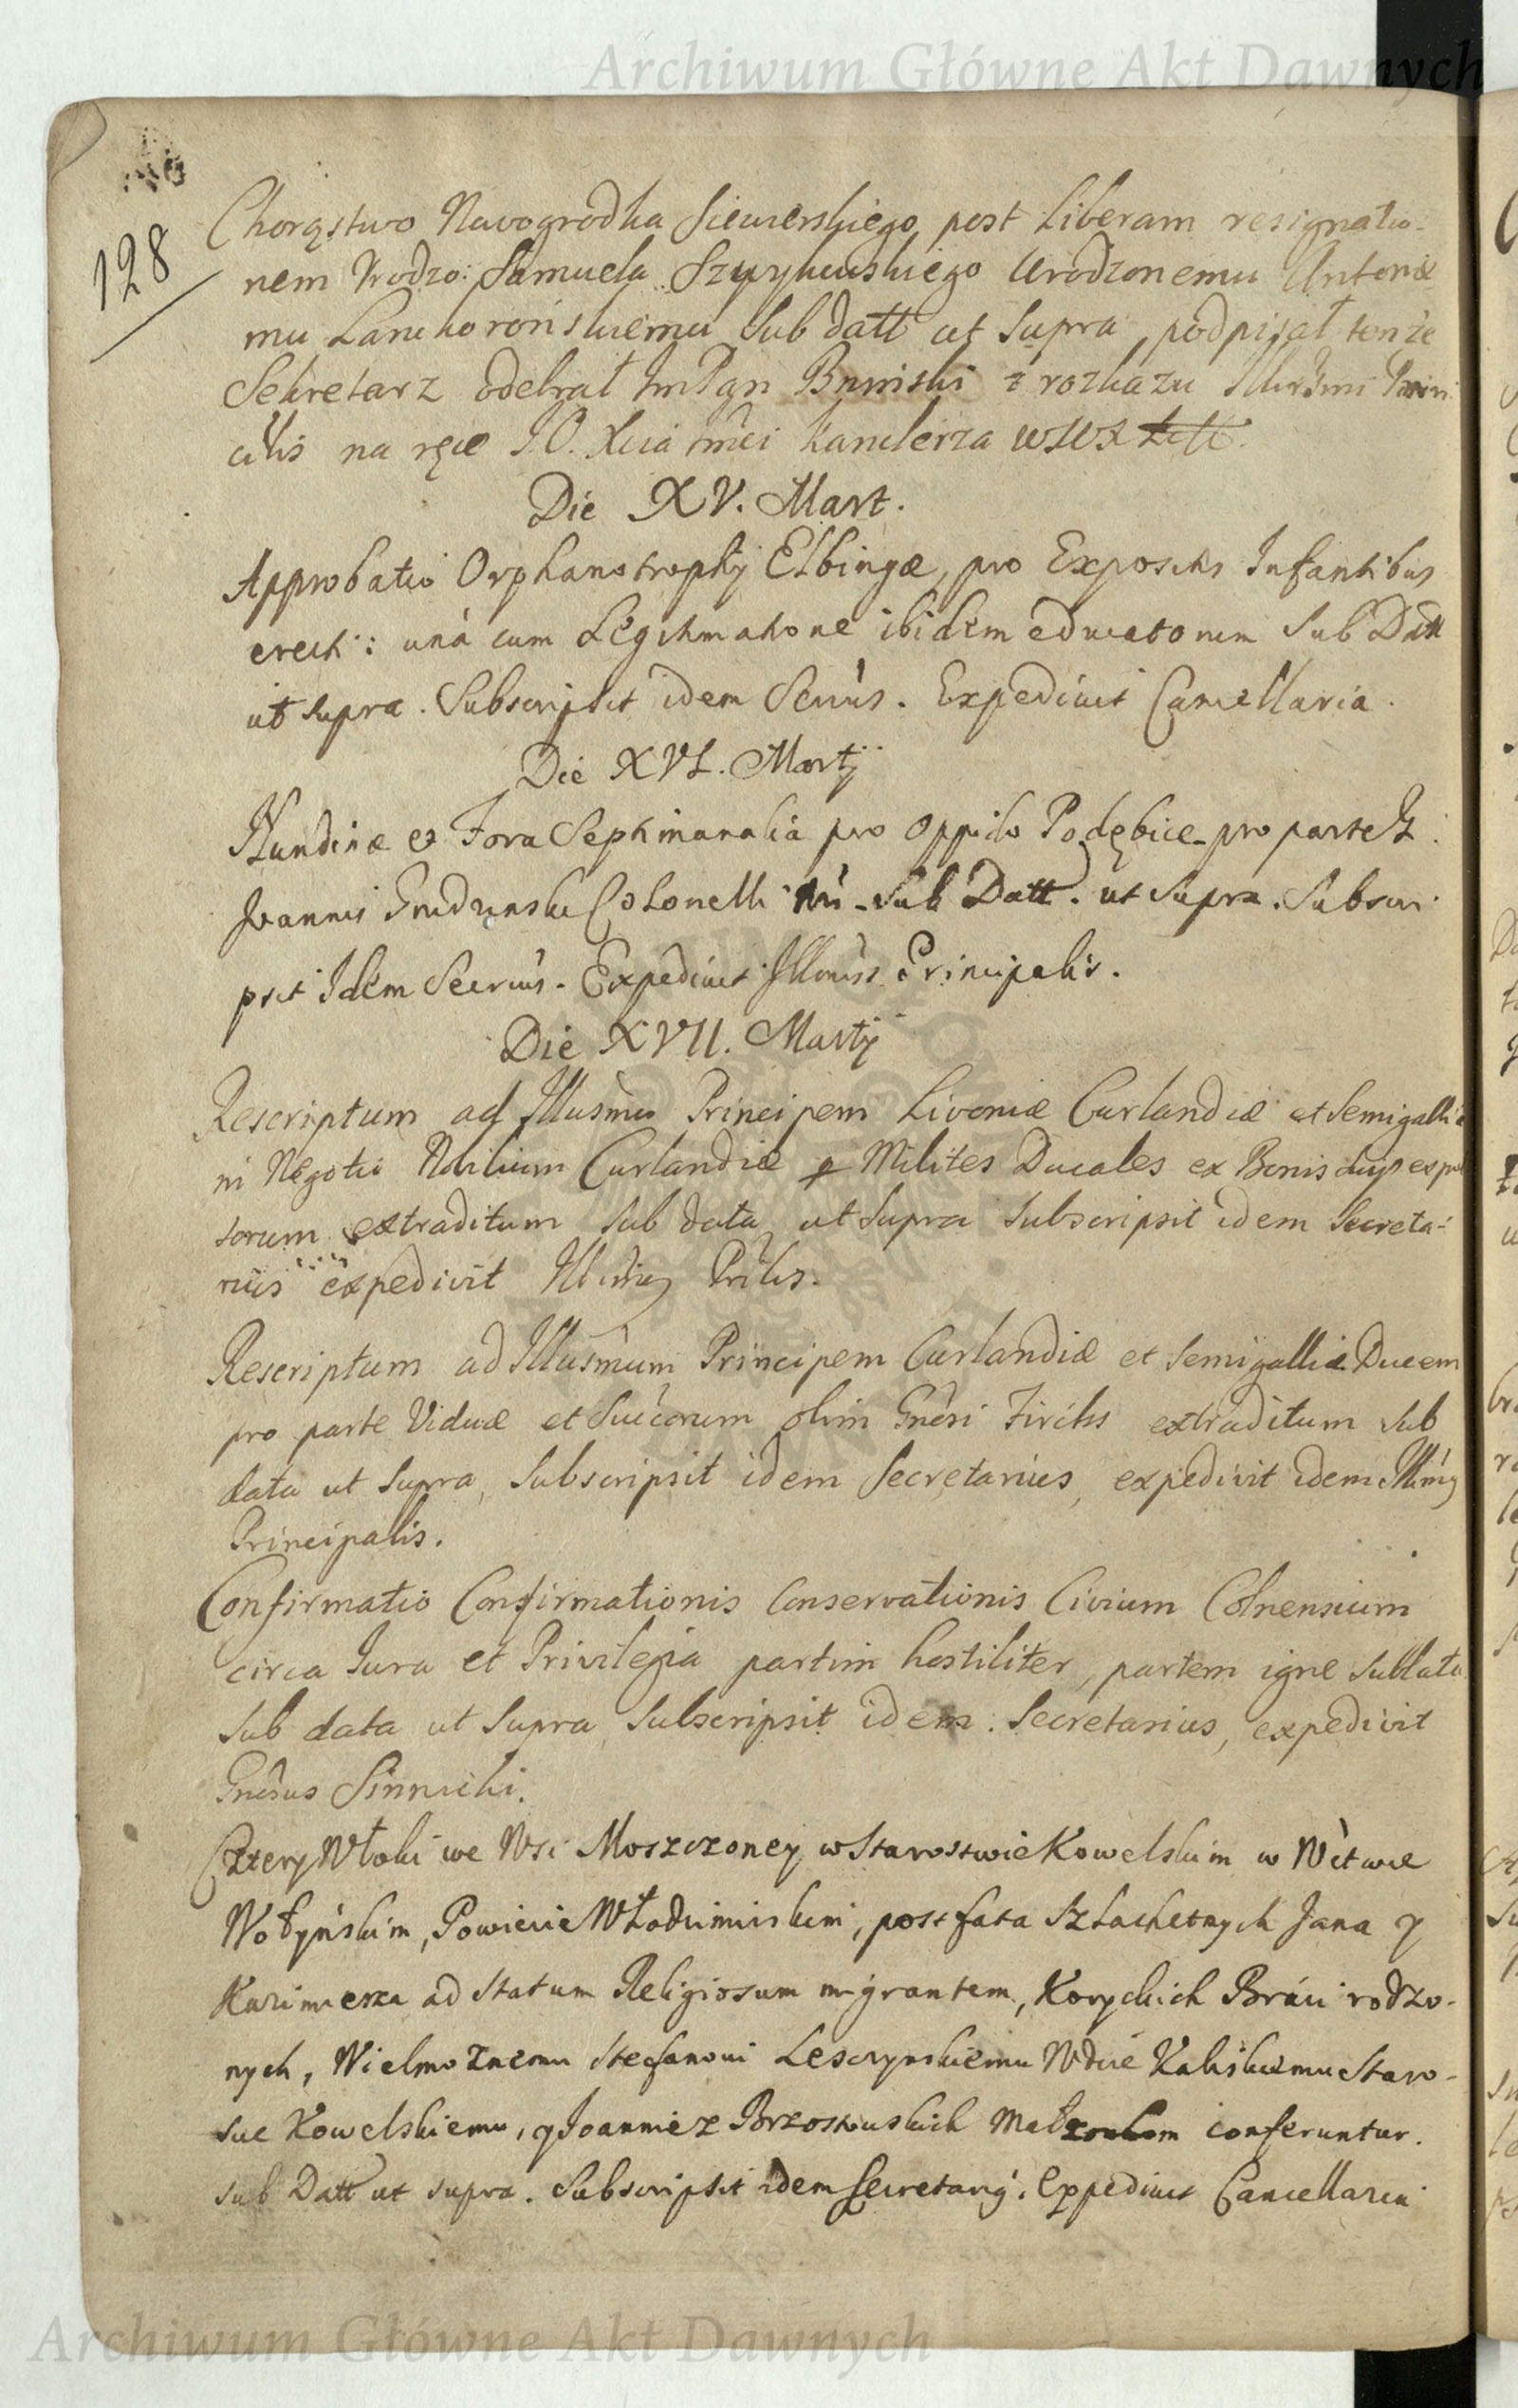 Archiwum Główne Akt Dawnych
128
Chorąstwo Nowogrodka Siewierskiego post liberam resignatio-
nem Urodzo: Samuela Urodzonemu Antonie
mu Lanckorońskiemu sub datt ut supra, podpisał tenże
Sekretarz odebrał ImPan Bnński z rozkazu
na ręce J.O. Xcia Imći Kanclerza
Die XV. Mart.
Approbatio Orphanotrophÿ Elbingæ, pro Expositis Infantibus
erecti: unà cum Legitimatione ibidem educatorum sub Datt
ut supra. Subscripsit idem Scrius. Expedivit Cancellaria.
Die XVI. Martÿ
Nundinæ et Fora Septimanalia pro oppido Podębice pro parte G.
Joannis Grudzinski Colonelli sub Datt. ut supra. Subscri-
psit Idem Secrius. Expedivit Illmus Principalis.
Die XVII. Martÿ
Rescriptum ad Illusmum Principem Livoniæ Curlandiæ et Semigalliæ
in Negotio Nobilium Curlandiæ p Milites Ducales ex Bonis suis expul
sorum extraditum sub data ut supra subscripsit idem Secreta-
rius expedivit Illmus Prlis.
Rescriptum ad Illusmum Principem Curlandiæ et Semigalliæ Ducem
pro parte Viduæ et Succorum olim Gnosi Fircks extraditum sub
data ut supra, subscripsit idem Secretarius, expedivit idem Illmus
Principalis.
Confirmatio Confirmationis Conservationis Civium Colnensium
circa Jura et Privilegia partim hostiliter, partem igne sublata
sub data ut supra subscripsit idem Secretarius, expedivit
Gnosus Sinnicki.
Cztery Włoki we Wsi Moszczoney w Starostwie Kowelskim w Wctwie
Wołyńskim, Powiecie Włodzimirskim, post fata Szlachetnych Jana y
Kazimierza ad statum Religiosum migrantem, Koryckich Braci rodzo-
nych, Wielmożnemu Stefanowi Lesczynskiemu Wdzie Kaliskiemu Staro-
scie Kowelskiemu, y Joannie z Brzostowskich Małżonkom conferuntur.
sub Datt ut supra. Subscripsit idem Secretarÿ. Expedivit Cancellaria
Archiwum Główne Akt Dawnych